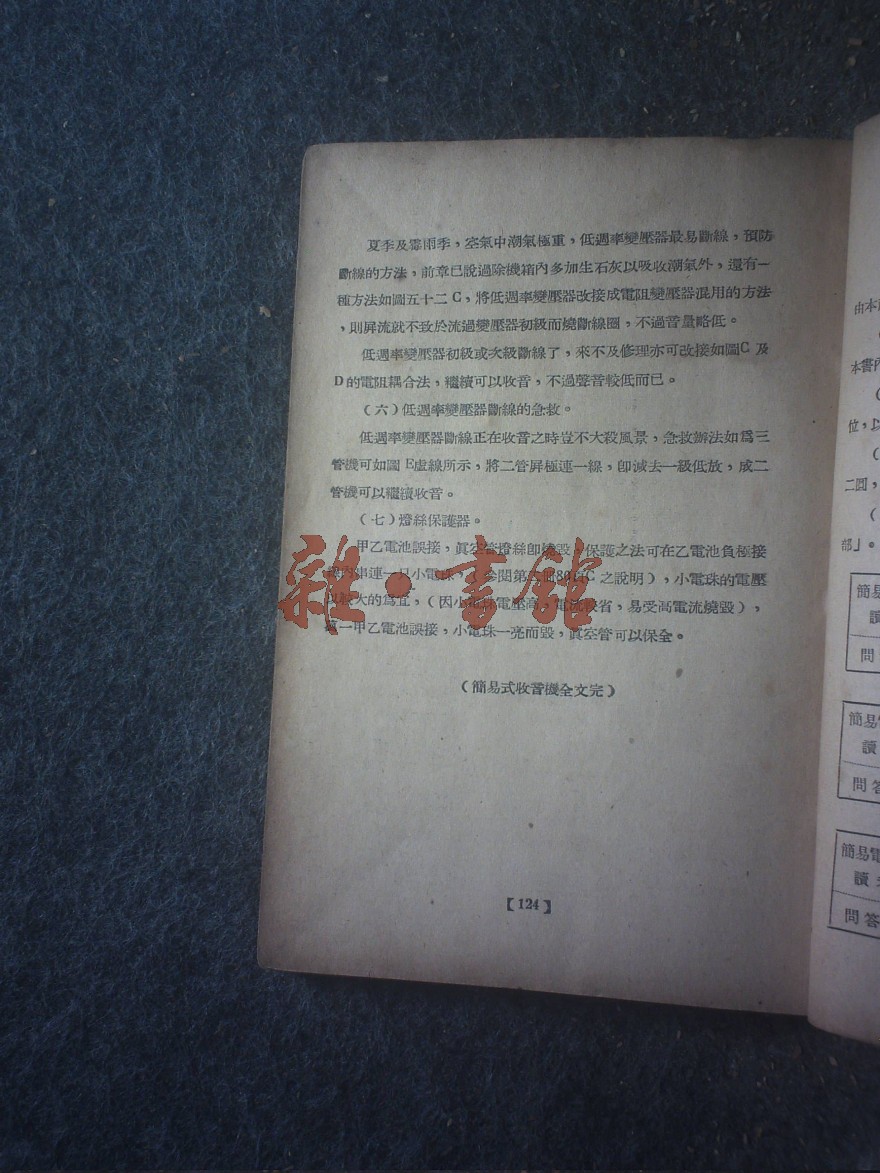 夏季及霪雨季，空氣中潮氣極重，低週率變壓器最易斷線，預防
斷線的方法，前章已說過除機箱內多加生石灰以吸收潮氣外，還有一
種方法如圖五十二C，將低週率變壓器改接成電阻變壓器混用的方法
，則屏流就不致於流過變壓器初級而燒斷線圈，不過音量略低。
低週率變壓器初級或次級斷線了，來不及修理亦可改接如圖C及
D的電阻耦合法，繼續可以收音，不過聲音較低而已。
（六）低週率變壓器斷線的急救。
低週率變壓器斷線正在收音之時豈不大殺風景，急救辦法如為三
管機可如圖E虛線所示，將二管屏極連一線，卽減去一級低放，成二
管機可以繼續收音。
（七）燈絲保護器。
甲乙電池誤接，眞空管燈絲卽燒毀，保護之法可在乙電池負極接
線內串連一只小電珠，（參閱第 之說明），小電珠的電壓
以較大的爲宜，（因小電珠電壓高，電流較省，易受高電流燒毀），
萬一甲乙電池誤接，小電珠一亮而毀，眞空管可以保全。
（簡易式收音機全文完）
【124】
雜·書館
由本
本書內
位，以
二圓，
部」。
簡易
讀
問
簡易電
讀
問答
簡易電
讀
問答